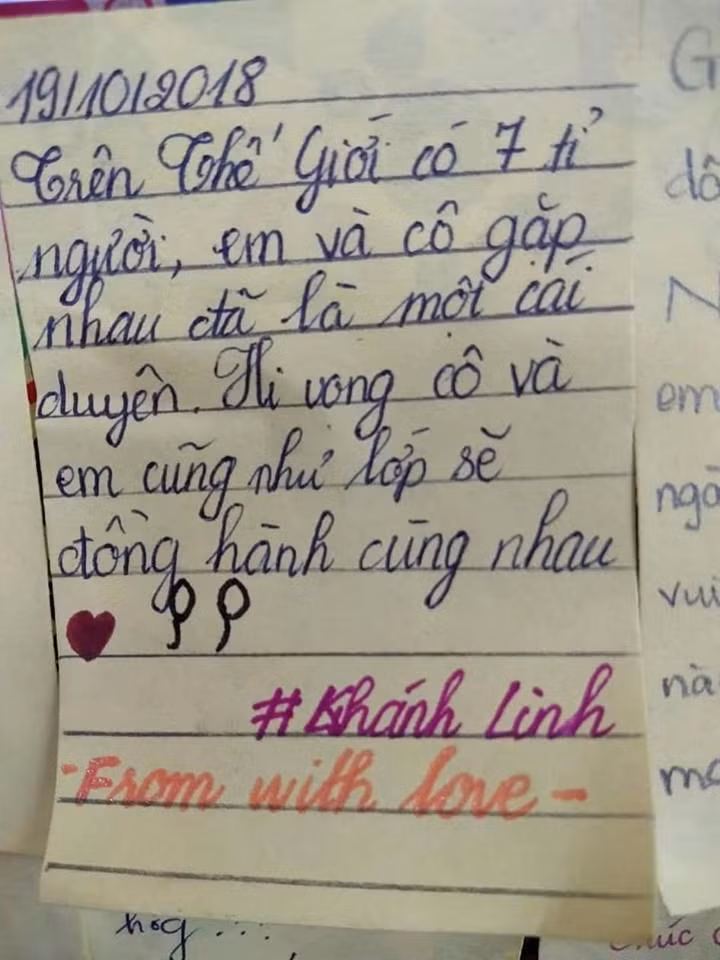 19/10/2018
Trên Thế Giới có 7 tỉ
người, em và cô gặp
nhau đã là một cái
duyên. Hi vọng cô và
em cũng như lớp sẽ
đồng hành cùng nhau
#Khánh Linh
-From with love-
G
dô
N
em
ngà
vui
nà
mo
hog ...